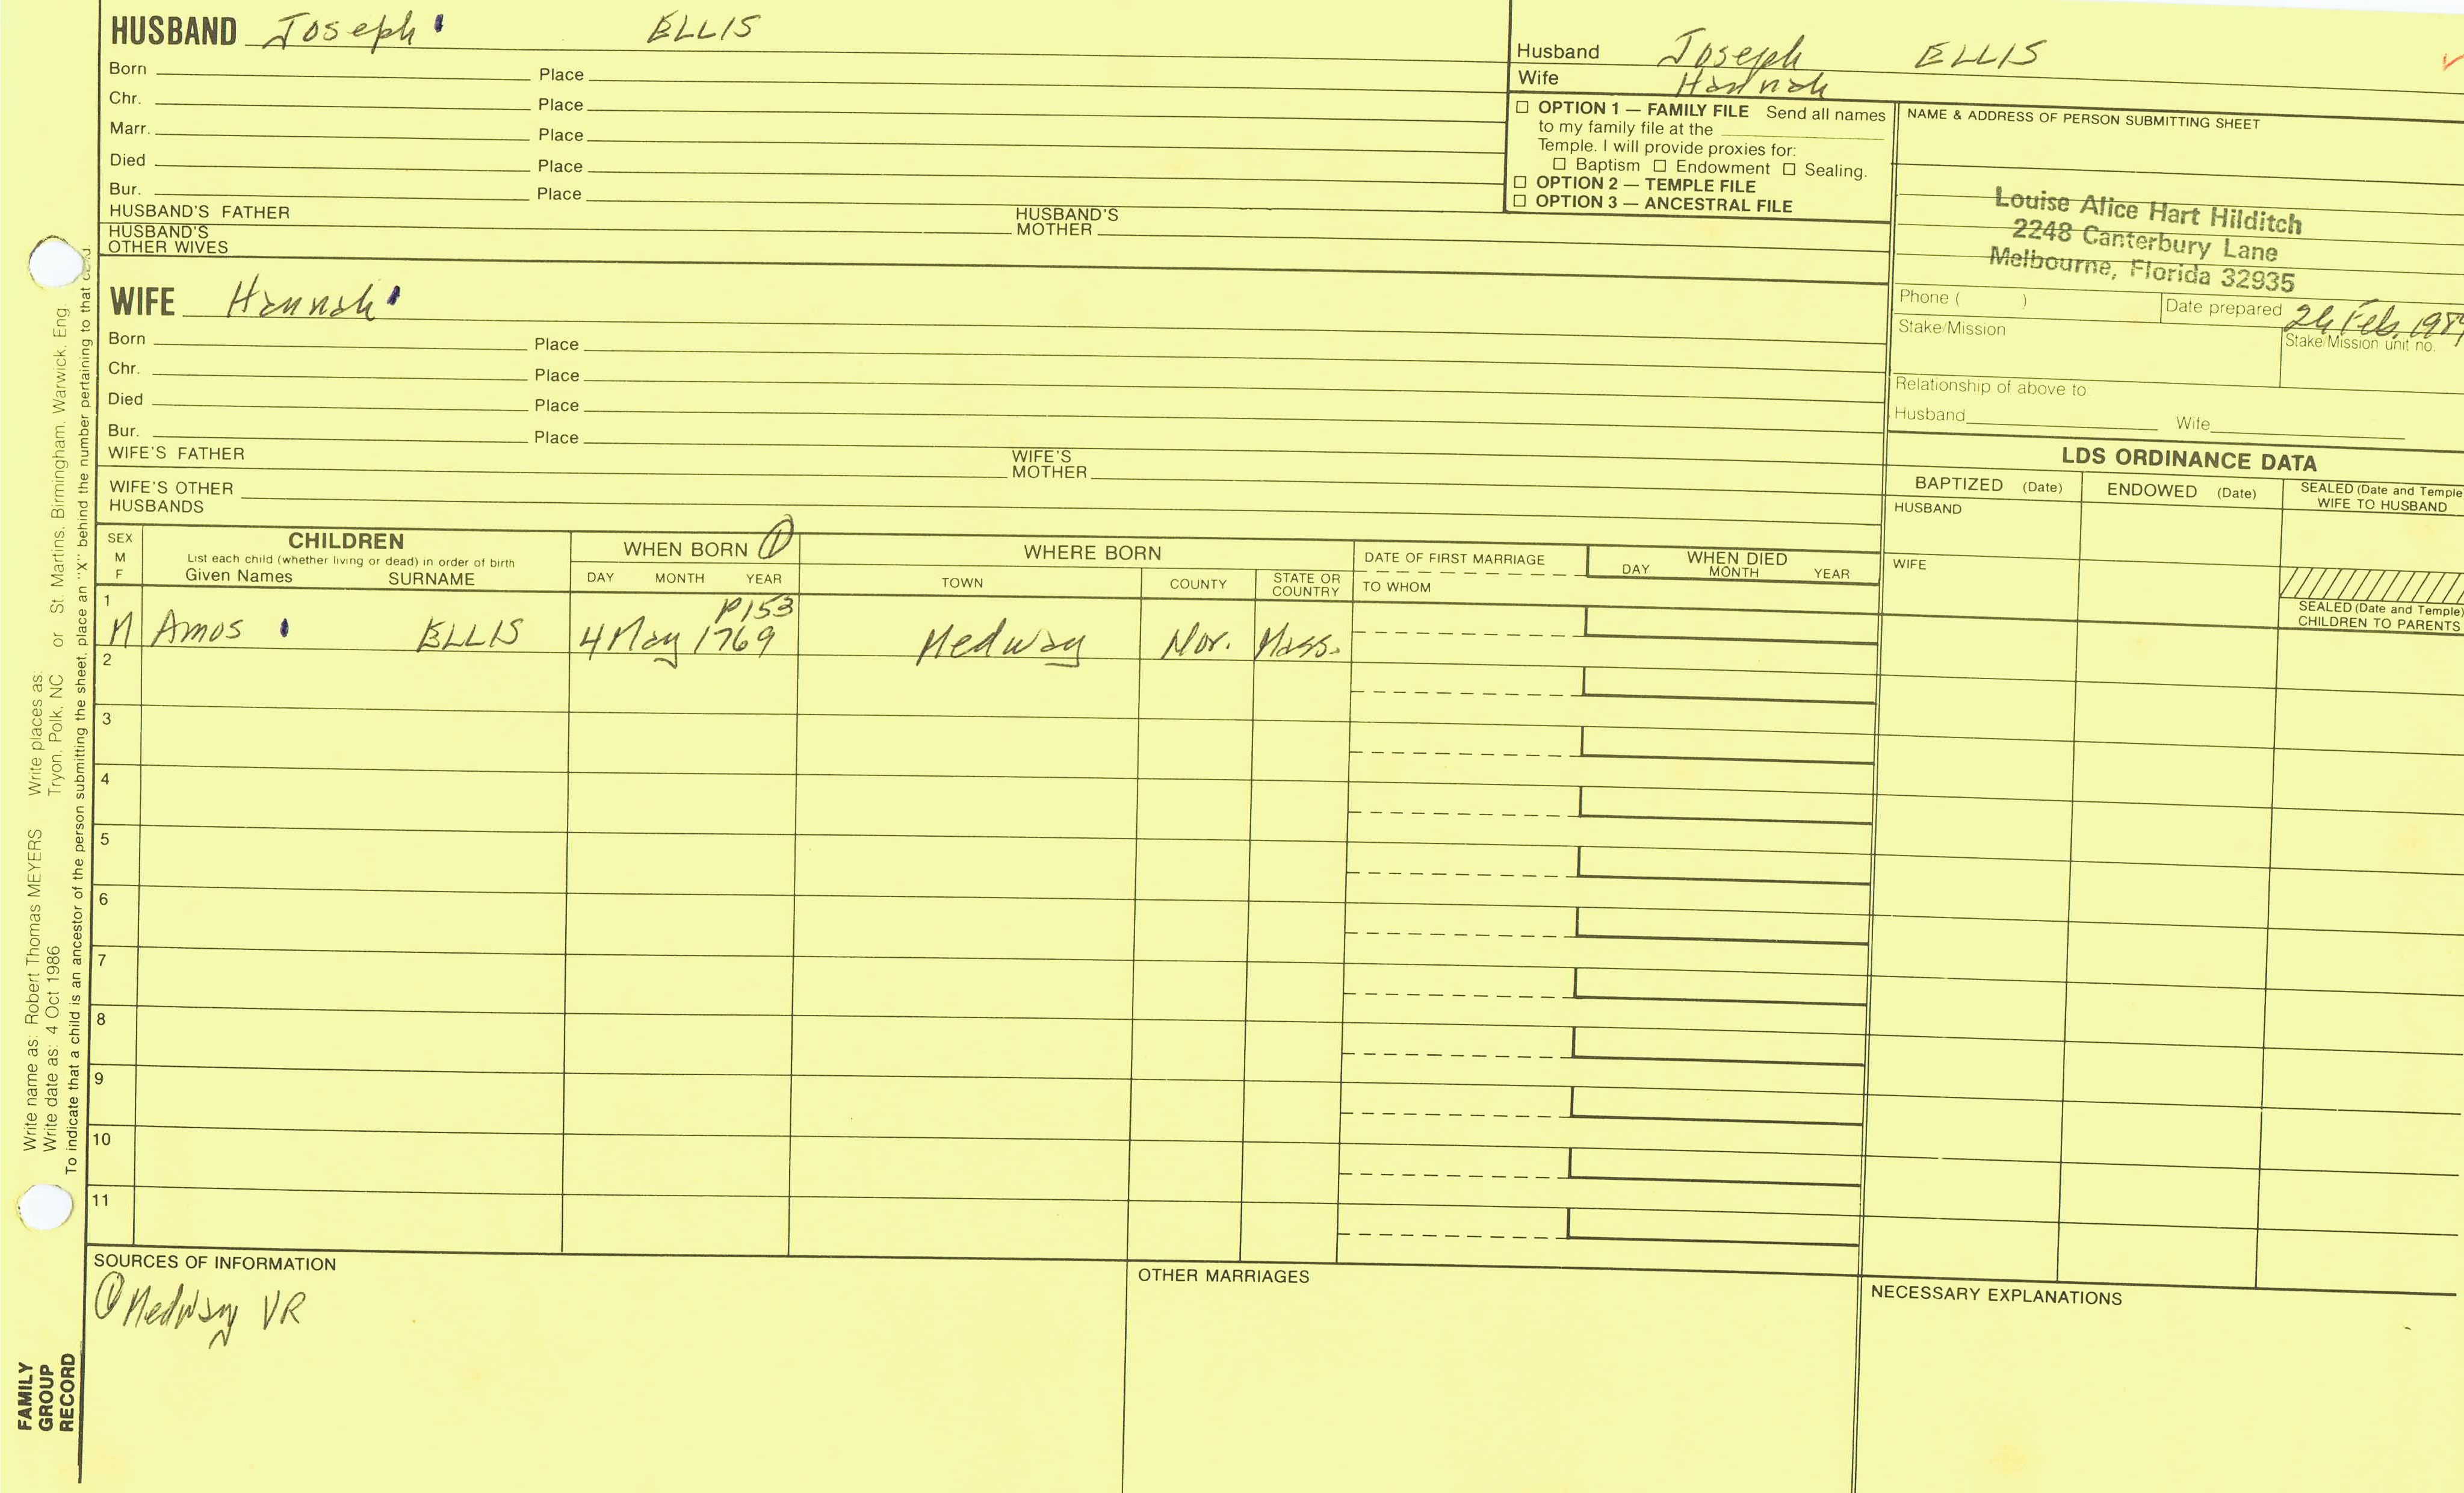 HUSBAND Joseph ELLIS
Born Place
Chr. Place
Marr. Place
Died Place
Bur. Place
HUSBAND'S FATHER HUSBAND'S MOTHER
HUSBAND'S OTHER WIVES
Husband Joseph ELLIS
Wife Hannah
☐ OPTION 1 — FAMILY FILE Send all names
to my family file at the
Temple. I will provide proxies for:
☐ Baptism ☐ Endowment ☐ Sealing.
☐ OPTION 2 — TEMPLE FILE
☐ OPTION 3 — ANCESTRAL FILE
NAME & ADDRESS OF PERSON SUBMITTING SHEET
Louise Alice Hart Hilditch
2248 Canterbury Lane
Melbourne, Florida 32935
Phone ( ) Date prepared 24 Feb. 198
Stake/Mission Stake/Mission unit no.
Relationship of above to:
Husband Wife
WIFE Hannah
Born Place
Chr. Place
Died Place
Bur. Place
WIFE'S FATHER WIFE'S MOTHER
WIFE'S OTHER HUSBANDS
LDS ORDINANCE DATA
BAPTIZED (Date) ENDOWED (Date) SEALED (Date and Temple
WIFE TO HUSBAND
HUSBAND
WIFE
SEALED (Date and Temple)
CHILDREN TO PARENTS
SEX
M
F
CHILDREN
List each child (whether living or dead) in order of birth
Given Names SURNAME
WHEN BORN ①
DAY MONTH YEAR
WHERE BORN
TOWN COUNTY STATE OR COUNTRY
DATE OF FIRST MARRIAGE
TO WHOM
WHEN DIED
DAY MONTH YEAR
1 P153
M Amos ELLIS 4 May 1769 Medway Nor. Mass.
2
3
4
5
6
7
8
9
10
11
SOURCES OF INFORMATION
① Medway VR
OTHER MARRIAGES
NECESSARY EXPLANATIONS
Write name as: Robert Thomas MEYERS Write places as:
Write date as: 4 Oct 1986 Tryon, Polk, NC or St. Martins, Birmingham, Warwick, Eng.
To indicate that a child is an ancestor of the person submitting the sheet, place an "X" behind the number pertaining to that
FAMILY
GROUP
RECORD